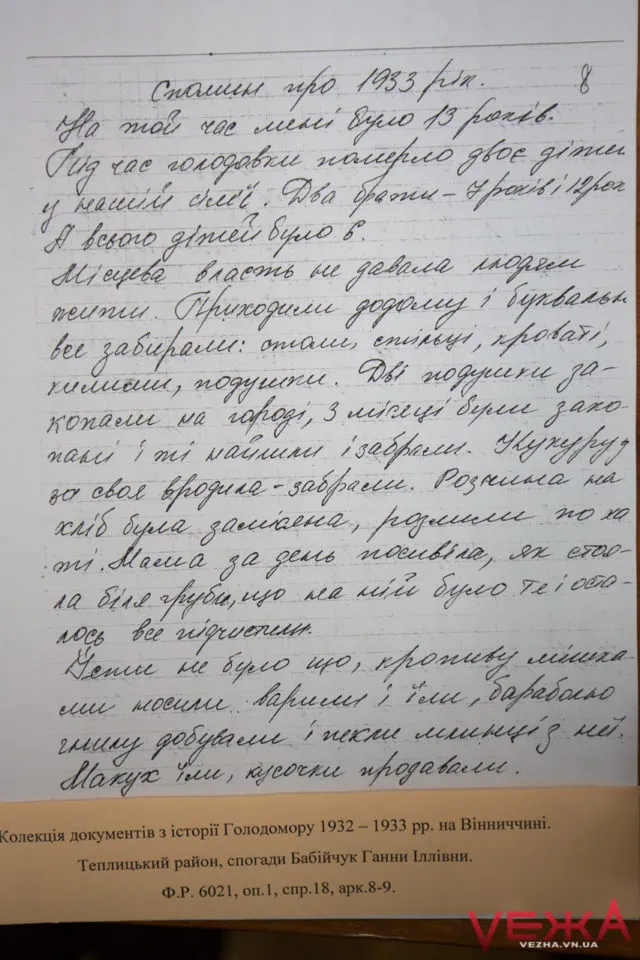 Спомин про 1933 рік.
8
На той час мені було 13 років.
Під час голодавки померло двоє дітей
у нашій сім'ї. Два брати - 7 років і 12 рок
А всього дітей було 6.
Місцева власть не давала людям
жити. Приходили додому і буквальн
все забирали: столи, стільці, кроваті,
килими, подушки. Дві подушки за-
копали на городі, 3 місяці були зако-
пані і ті найшли і забрали. Кукуруд
за своя вродила - забрали. Розчина на
хліб була замішена, розлили по ха
ті. Мама за день посивіла, як стоя-
ла біля груби, що на ній було те і оста-
лось все підчистили.
Їсти не було що, кропиву мішка-
ми носили варили і їли, бараболю
гнилу добували і пекли млинці з неї.
Макух їли, кусочки продавали.
Колекція документів з історії Голодомору 1932 – 1933 рр. на Вінниччині.
Теплицький район, спогади Бабійчук Ганни Іллівни.
Ф.Р. 6021, оп.1, спр.18, арк.8-9.
VЕЖА
VEZHA.VN.UA